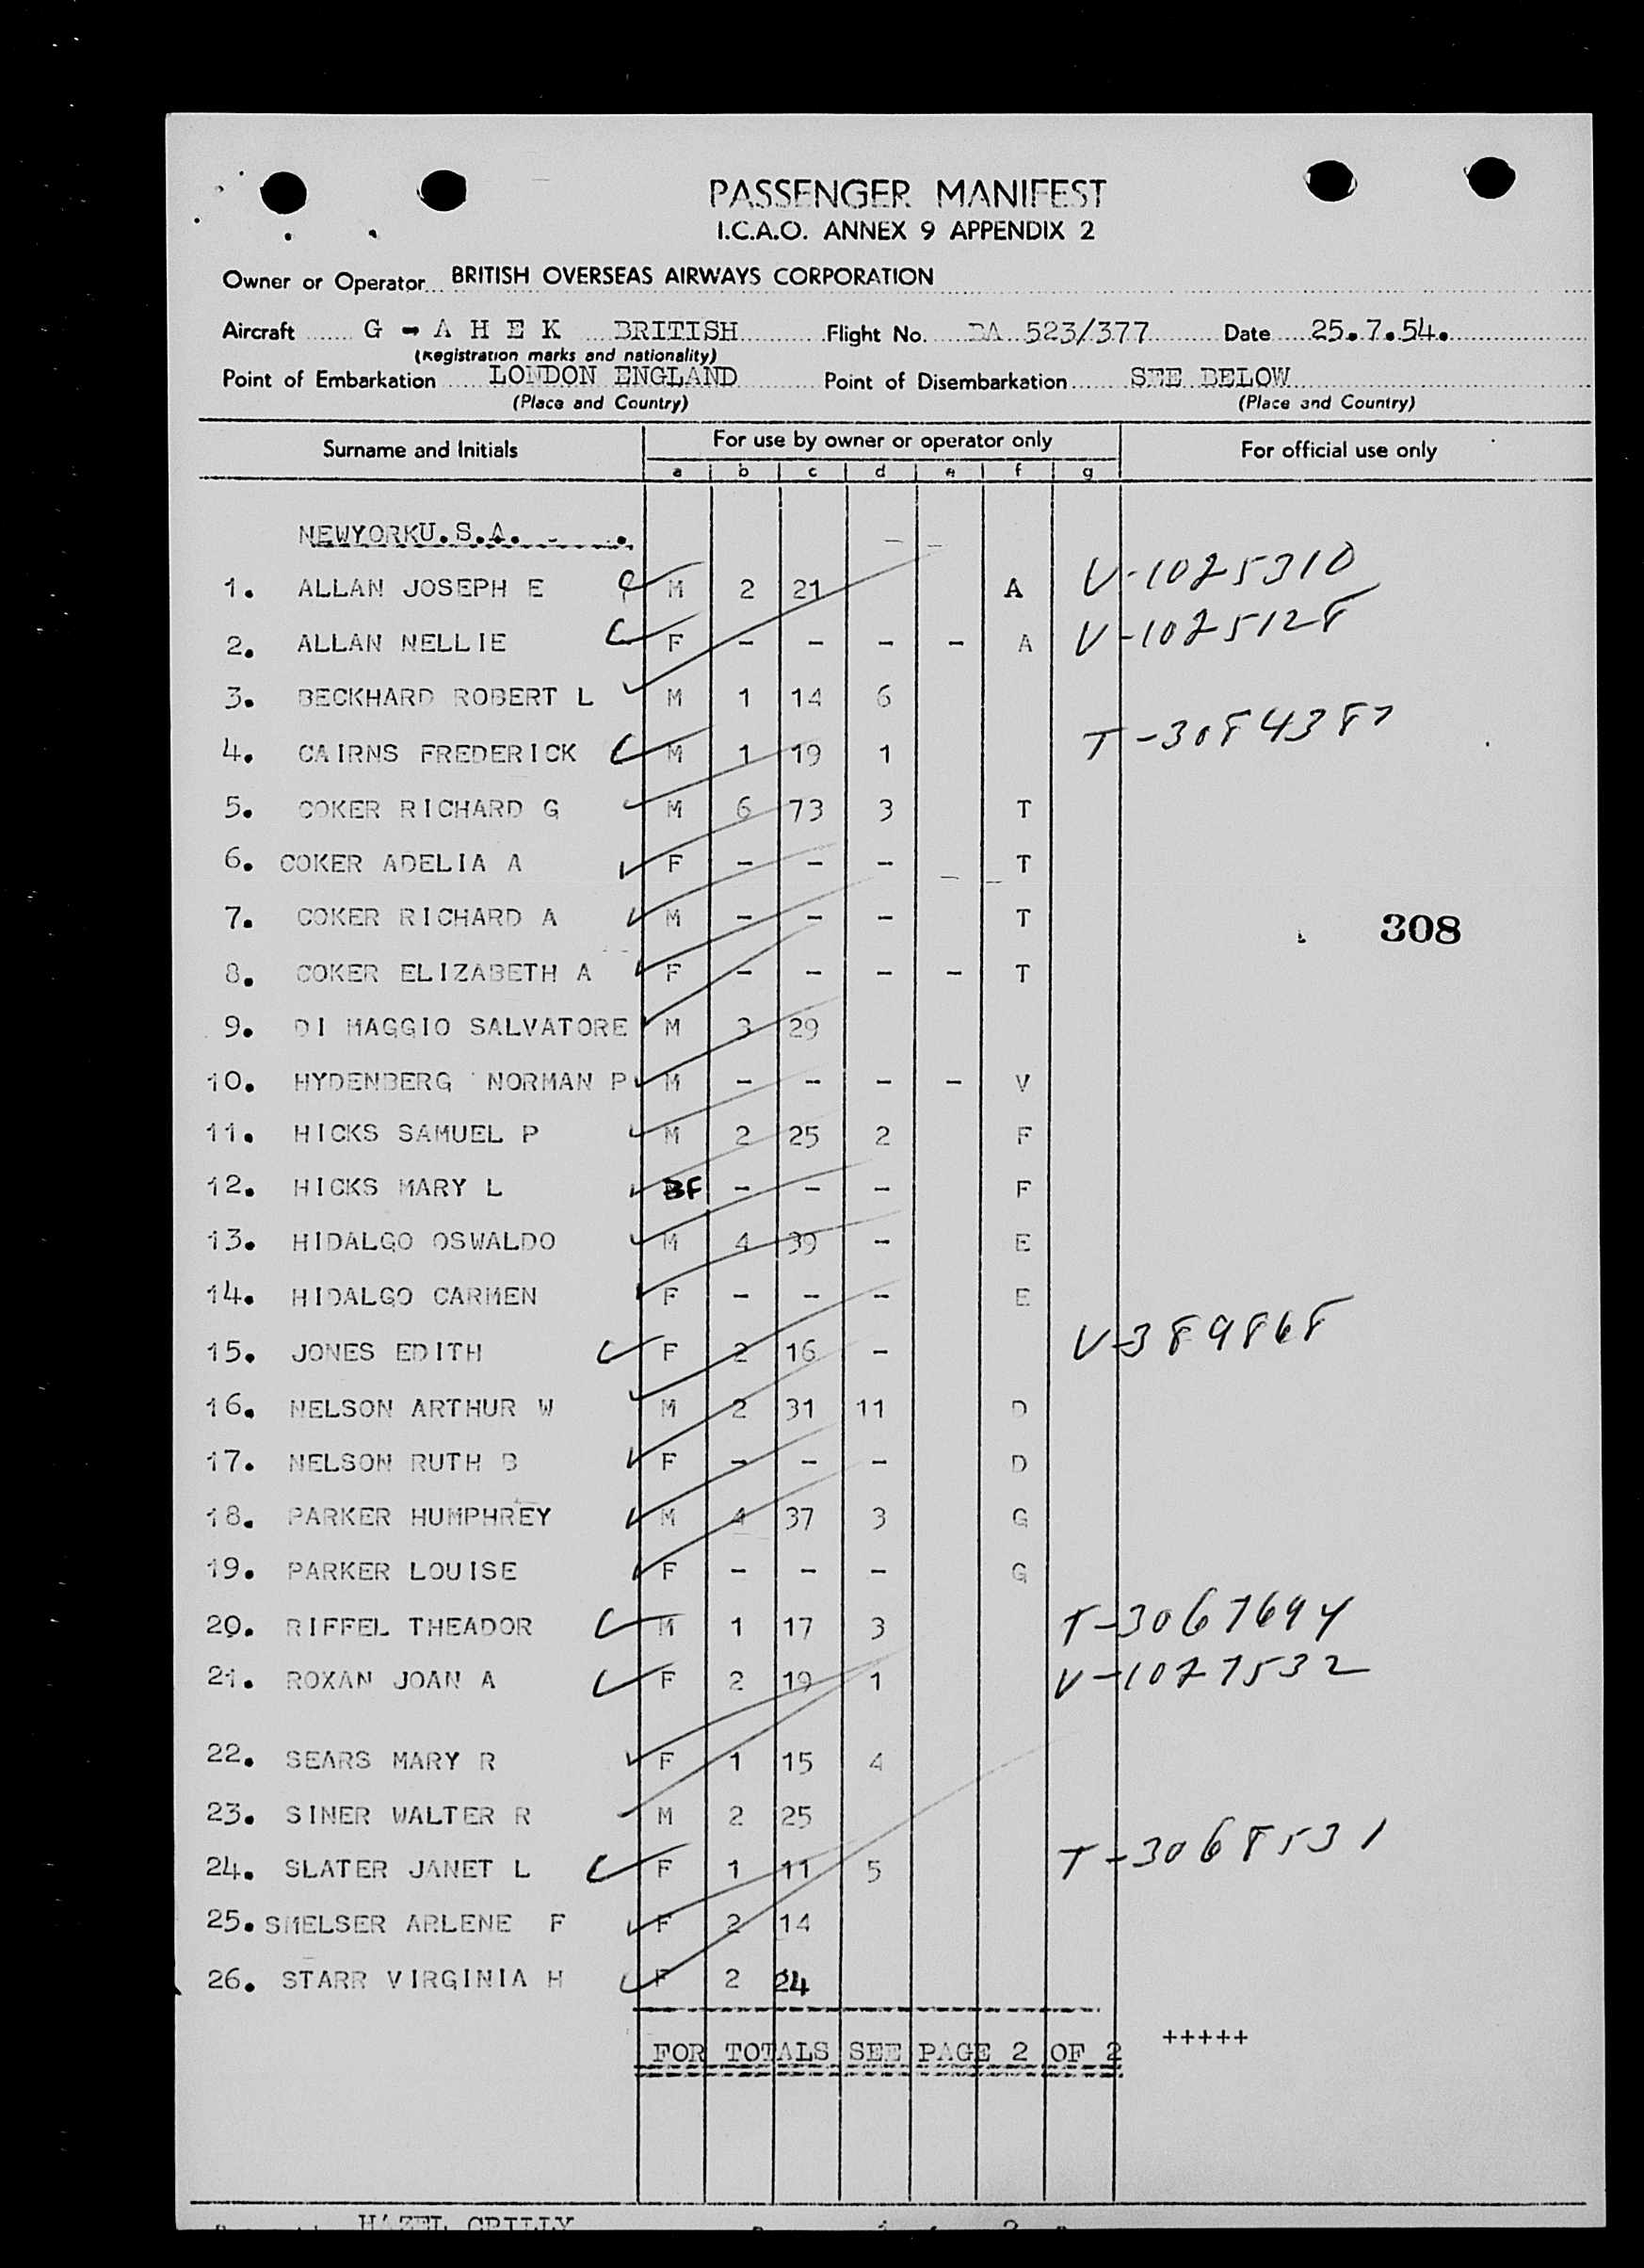 PASSENGER MANIFEST
I.C.A.O. ANNEX 9 APPENDIX 2
Owner or Operator BRITISH OVERSEAS AIRWAYS CORPORATION
Aircraft G - A H E K BRITISH Flight No. BA 523/377 Date 25.7.54.
(Registration marks and nationality)
Point of Embarkation LONDON ENGLAND Point of Disembarkation SEE BELOW
(Place and Country) (Place and Country)
Surname and Initials For use by owner or operator only For official use only
a b c d e f g
NEWYORKU.S.A.
1. ALLAN JOSEPH E M 2 21 A V-1025310
2. ALLAN NELLIE F - - - - A V-1025128
3. BECKHARD ROBERT L M 1 14 6
4. CAIRNS FREDERICK M 1 19 1 T-3084387
5. COKER RICHARD G M 6 73 3 T
6. COKER ADELIA A F - - - T
7. COKER RICHARD A M - - - T
308
8. COKER ELIZABETH A F - - - - T
9. DI MAGGIO SALVATORE M 3 29
10. HYDENBERG NORMAN P M - - - - V
11. HICKS SAMUEL P M 2 25 2 F
12. HICKS MARY L F - - - F
13. HIDALGO OSWALDO M 4 39 - E
14. HIDALGO CARMEN F - - - E
15. JONES EDITH F 2 16 - V-389868
16. NELSON ARTHUR W M 2 31 11 D
17. NELSON RUTH B F - - - D
18. PARKER HUMPHREY M 4 37 3 G
19. PARKER LOUISE F - - - G
20. RIFFEL THEADOR M 1 17 3 T-3067694
21. ROXAN JOAN A F 2 19 1 V-1027532
22. SEARS MARY R F 1 15 4
23. SINER WALTER R M 2 25
24. SLATER JANET L F 1 11 5 T-3068531
25. SMELSER ARLENE F F 2 14
26. STARR VIRGINIA H F 2 24
FOR TOTALS SEE PAGE 2 OF 2 +++++
HAZEL CRILLY